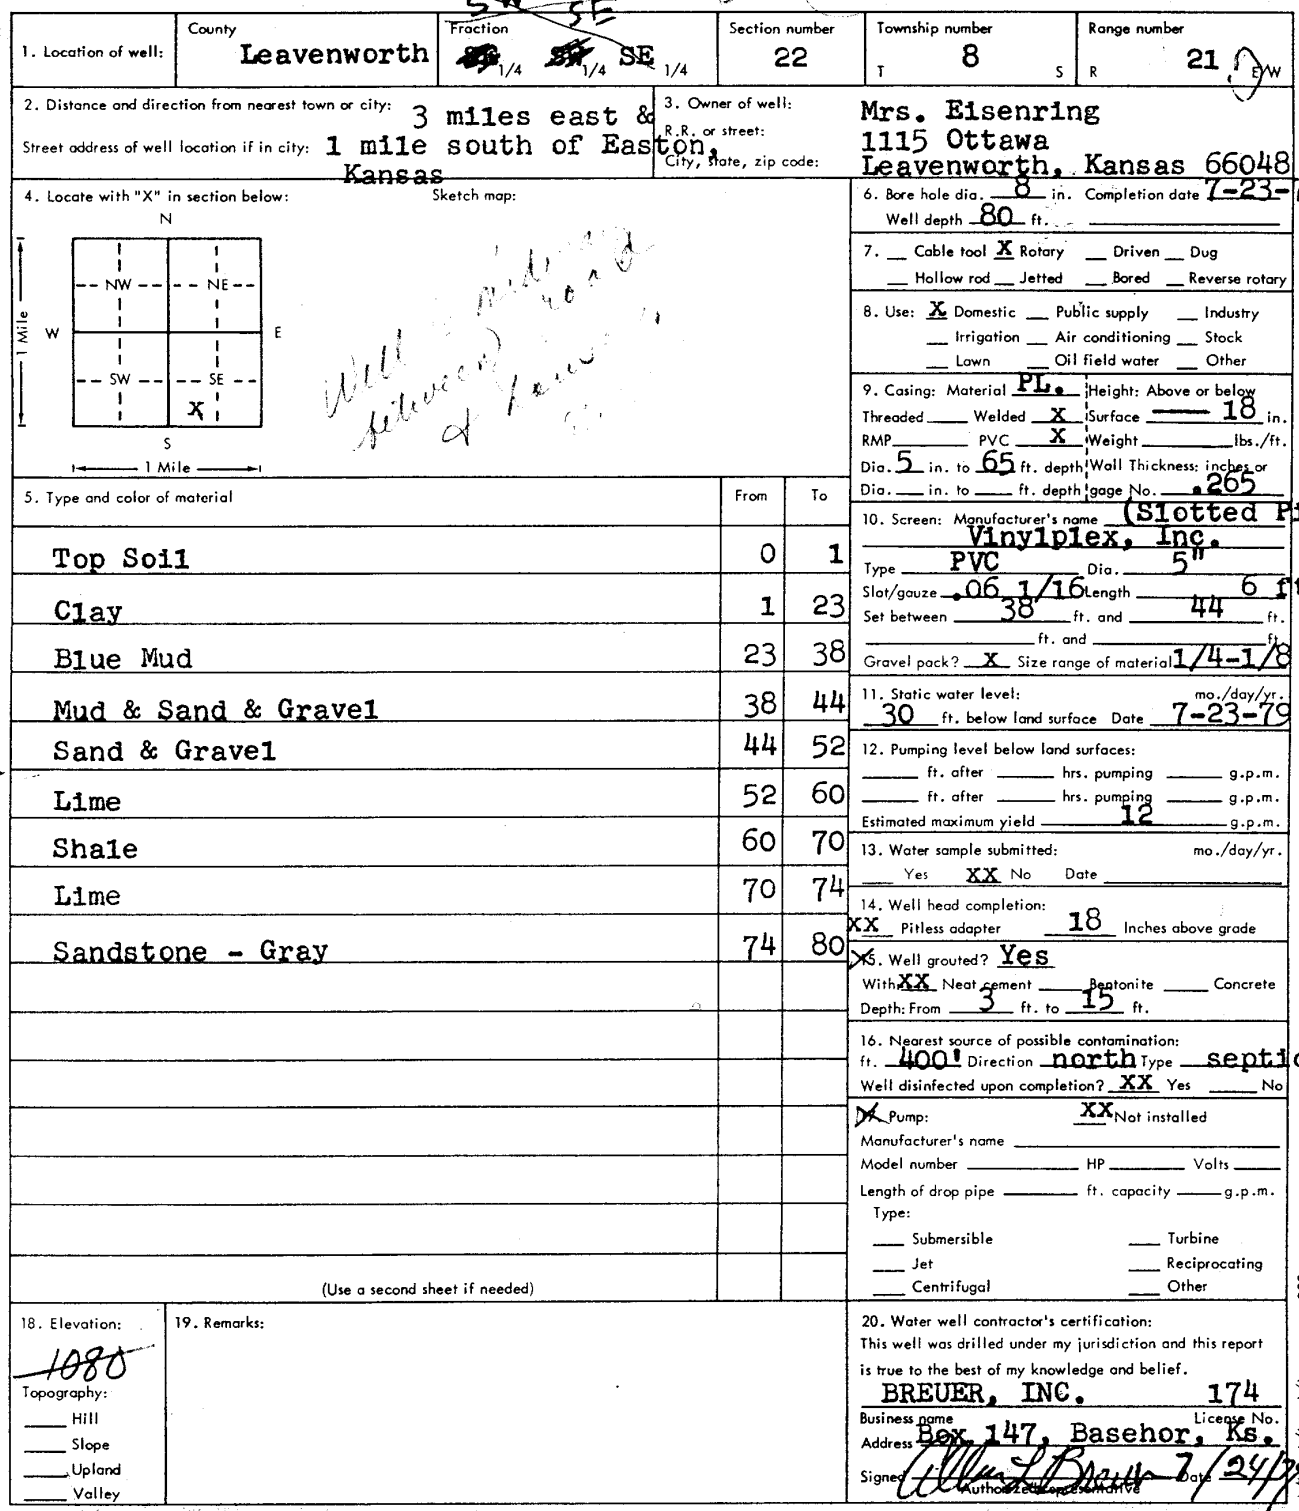 SW SE
County Fraction Section number Township number Range number
1. Location of well: Leavenworth 1/4 1/4 SE 1/4 22 T 8 S R 21 E/W
2. Distance and direction from nearest town or city: 3 miles east &
Street address of well location if in city: 1 mile south of Easton,
Kansas
3. Owner of well: Mrs. Eisenring
R.R. or street: 1115 Ottawa
City, state, zip code: Leavenworth, Kansas 66048
4. Locate with "X" in section below: Sketch map:
N
NW NE
W E
SW SE
X
S
1 Mile
1 Mile
Well
between road
&
5. Type and color of material From To
Top Soil 0 1
Clay 1 23
Blue Mud 23 38
Mud & Sand & Gravel 38 44
Sand & Gravel 44 52
Lime 52 60
Shale 60 70
Lime 70 74
Sandstone - Gray 74 80
(Use a second sheet if needed)
6. Bore hole dia. 8 in. Completion date 7-23-
Well depth 80 ft.
7. Cable tool X Rotary Driven Dug
Hollow rod Jetted Bored Reverse rotary
8. Use: X Domestic Public supply Industry
Irrigation Air conditioning Stock
Lawn Oil field water Other
9. Casing: Material PL. Height: Above or below
Threaded Welded X Surface 18 in.
RMP PVC X Weight lbs./ft.
Dia. 5 in. to 65 ft. depth Wall Thickness: inches or
Dia. in. to ft. depth gage No. .265
10. Screen: Manufacturer's name (Slotted Pi
Vinylplex, Inc.
Type PVC Dia. 5"
Slot/gauze .06 1/16 Length 6 ft
Set between 38 ft. and 44 ft.
ft. and ft.
Gravel pack? X Size range of material 1/4-1/8
11. Static water level: mo./day/yr.
30 ft. below land surface Date 7-23-79
12. Pumping level below land surfaces:
ft. after hrs. pumping g.p.m.
ft. after hrs. pumping g.p.m.
Estimated maximum yield 12 g.p.m.
13. Water sample submitted: mo./day/yr.
Yes XX No Date
14. Well head completion:
XX Pitless adapter 18 Inches above grade
15. Well grouted? Yes
With XX Neat cement Bentonite Concrete
Depth: From 3 ft. to 15 ft.
16. Nearest source of possible contamination:
ft. 400' Direction north Type septic
Well disinfected upon completion? XX Yes No
Pump: XX Not installed
Manufacturer's name
Model number HP Volts
Length of drop pipe ft. capacity g.p.m.
Type:
Submersible Turbine
Jet Reciprocating
Centrifugal Other
18. Elevation:
1080
Topography:
Hill
Slope
Upland
Valley
19. Remarks:
20. Water well contractor's certification:
This well was drilled under my jurisdiction and this report
is true to the best of my knowledge and belief.
BREUER, INC. 174
Business name License No.
Address Box 147, Basehor, Ks.
Signed Date 7/24/79
Authorized representative